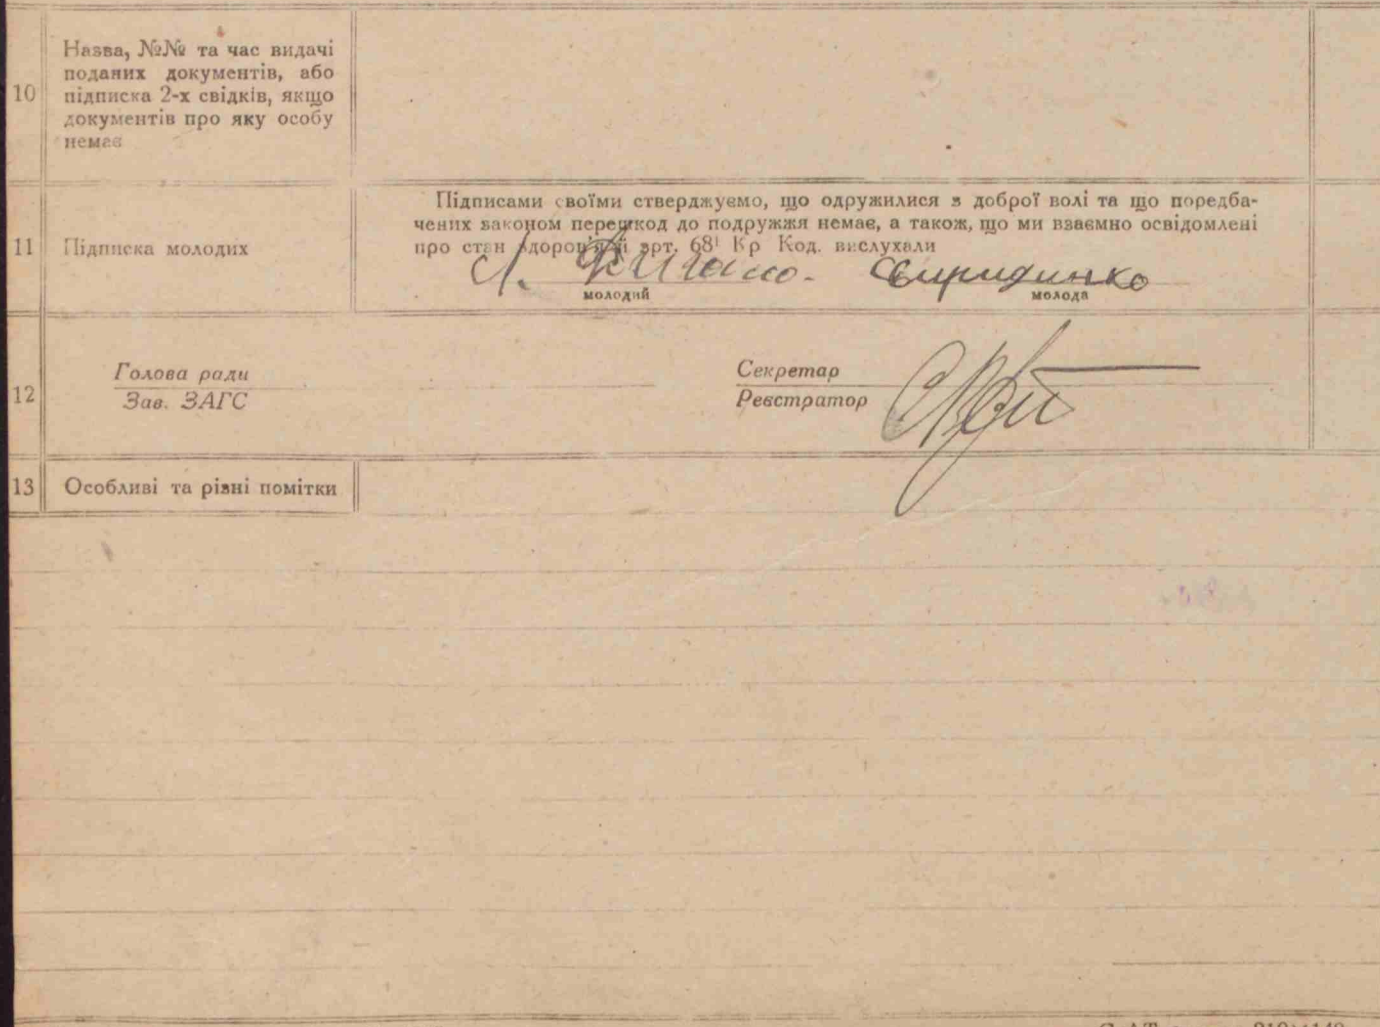 10
Назва, №№ та час видачі
поданих документів, або
підписка 2-х свідків, якщо
документів про яку особу
немає
11
Підписка молодих
Підписами своїми стверджуємо, що одружилися з доброї волі та що поредба-
чених законом перешкод до подружжя немає, а також, що ми взаємно освідомлені
про стан здоров'я й арт. 68¹ Кр Код. вислухали
Свиридинко
молодий
молода
12
Голова ради
Зав. ЗАГС
Секретар
Реєстратор
13
Особливі та різні помітки